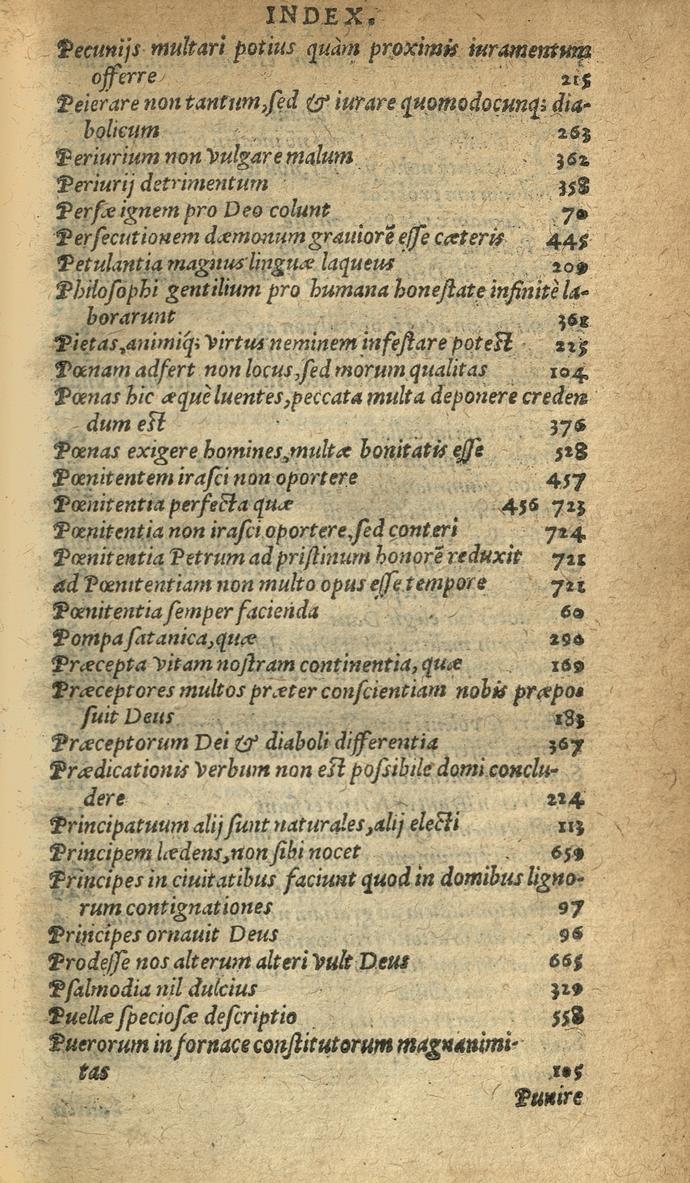 INDEX.
Pecunijs multari potius quàm proximis iuramentum
offerre 215
Peierare non tantum, sed & iurare quomodocunq; dia-
bolicum 263
Periurium non vulgare malum 362
Periurij detrimentum 358
Persæ ignem pro Deo colunt 70
Persecutionem dæmonum grauiorē esse cæteris 445
Petulantia magnus linguæ laqueus 209
Philosophi gentilium pro humana honestate infinitè la-
borarunt 368
Pietas, animiq́; virtus neminem infestare potest 225
Pœnam adfert non locus, sed morum qualitas 104
Pœnas hic æquè luentes, peccata multa deponere creden
dum est 376
Pœnas exigere homines, multæ bonitatis esse 528
Pœnitentem irasci non oportere 457
Pœnitentia perfecta quæ 456 723
Pœnitentia non irasci oportere, sed conteri 724
Pœnitentia Petrum ad pristinum honorē reduxit 721
ad Pœnitentiam non multo opus esse tempore 721
Pœnitentia semper facienda 60
Pompa satanica, quæ 290
Præcepta vitam nostram continentia, quæ 169
Præceptores multos præter conscientiam nobis præpo-
suit Deus 183
Præceptorum Dei & diaboli differentia 367
Prædicationis verbum non est possibile domi conclu-
dere 224
Principatuum alij sunt naturales, alij electi 113
Principem lædens, non sibi nocet 659
Principes in ciuitatibus faciunt quod in domibus ligno-
rum contignationes 97
Principes ornauit Deus 96
Prodesse nos alterum alteri vult Deus 665
Psalmodia nil dulcius 329
Puellæ speciosæ descriptio 558
Puerorum in fornace constitutorum magnanimi-
tas 105
Punire